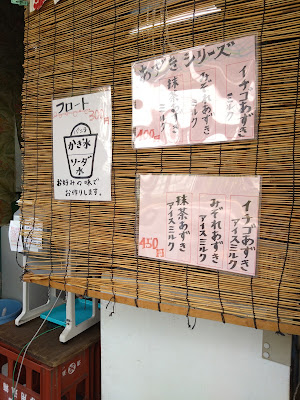 フロート
300円
バニラ
かき氷
ソーダ水
お好みの味で
お作りします。
あずきシリーズ
イチゴあずきミルク
みぞれあずきミルク
抹茶あずきミルク
400円
イチゴあずきアイスミルク
みぞれあずきアイスミルク
抹茶あずきアイスミルク
450円